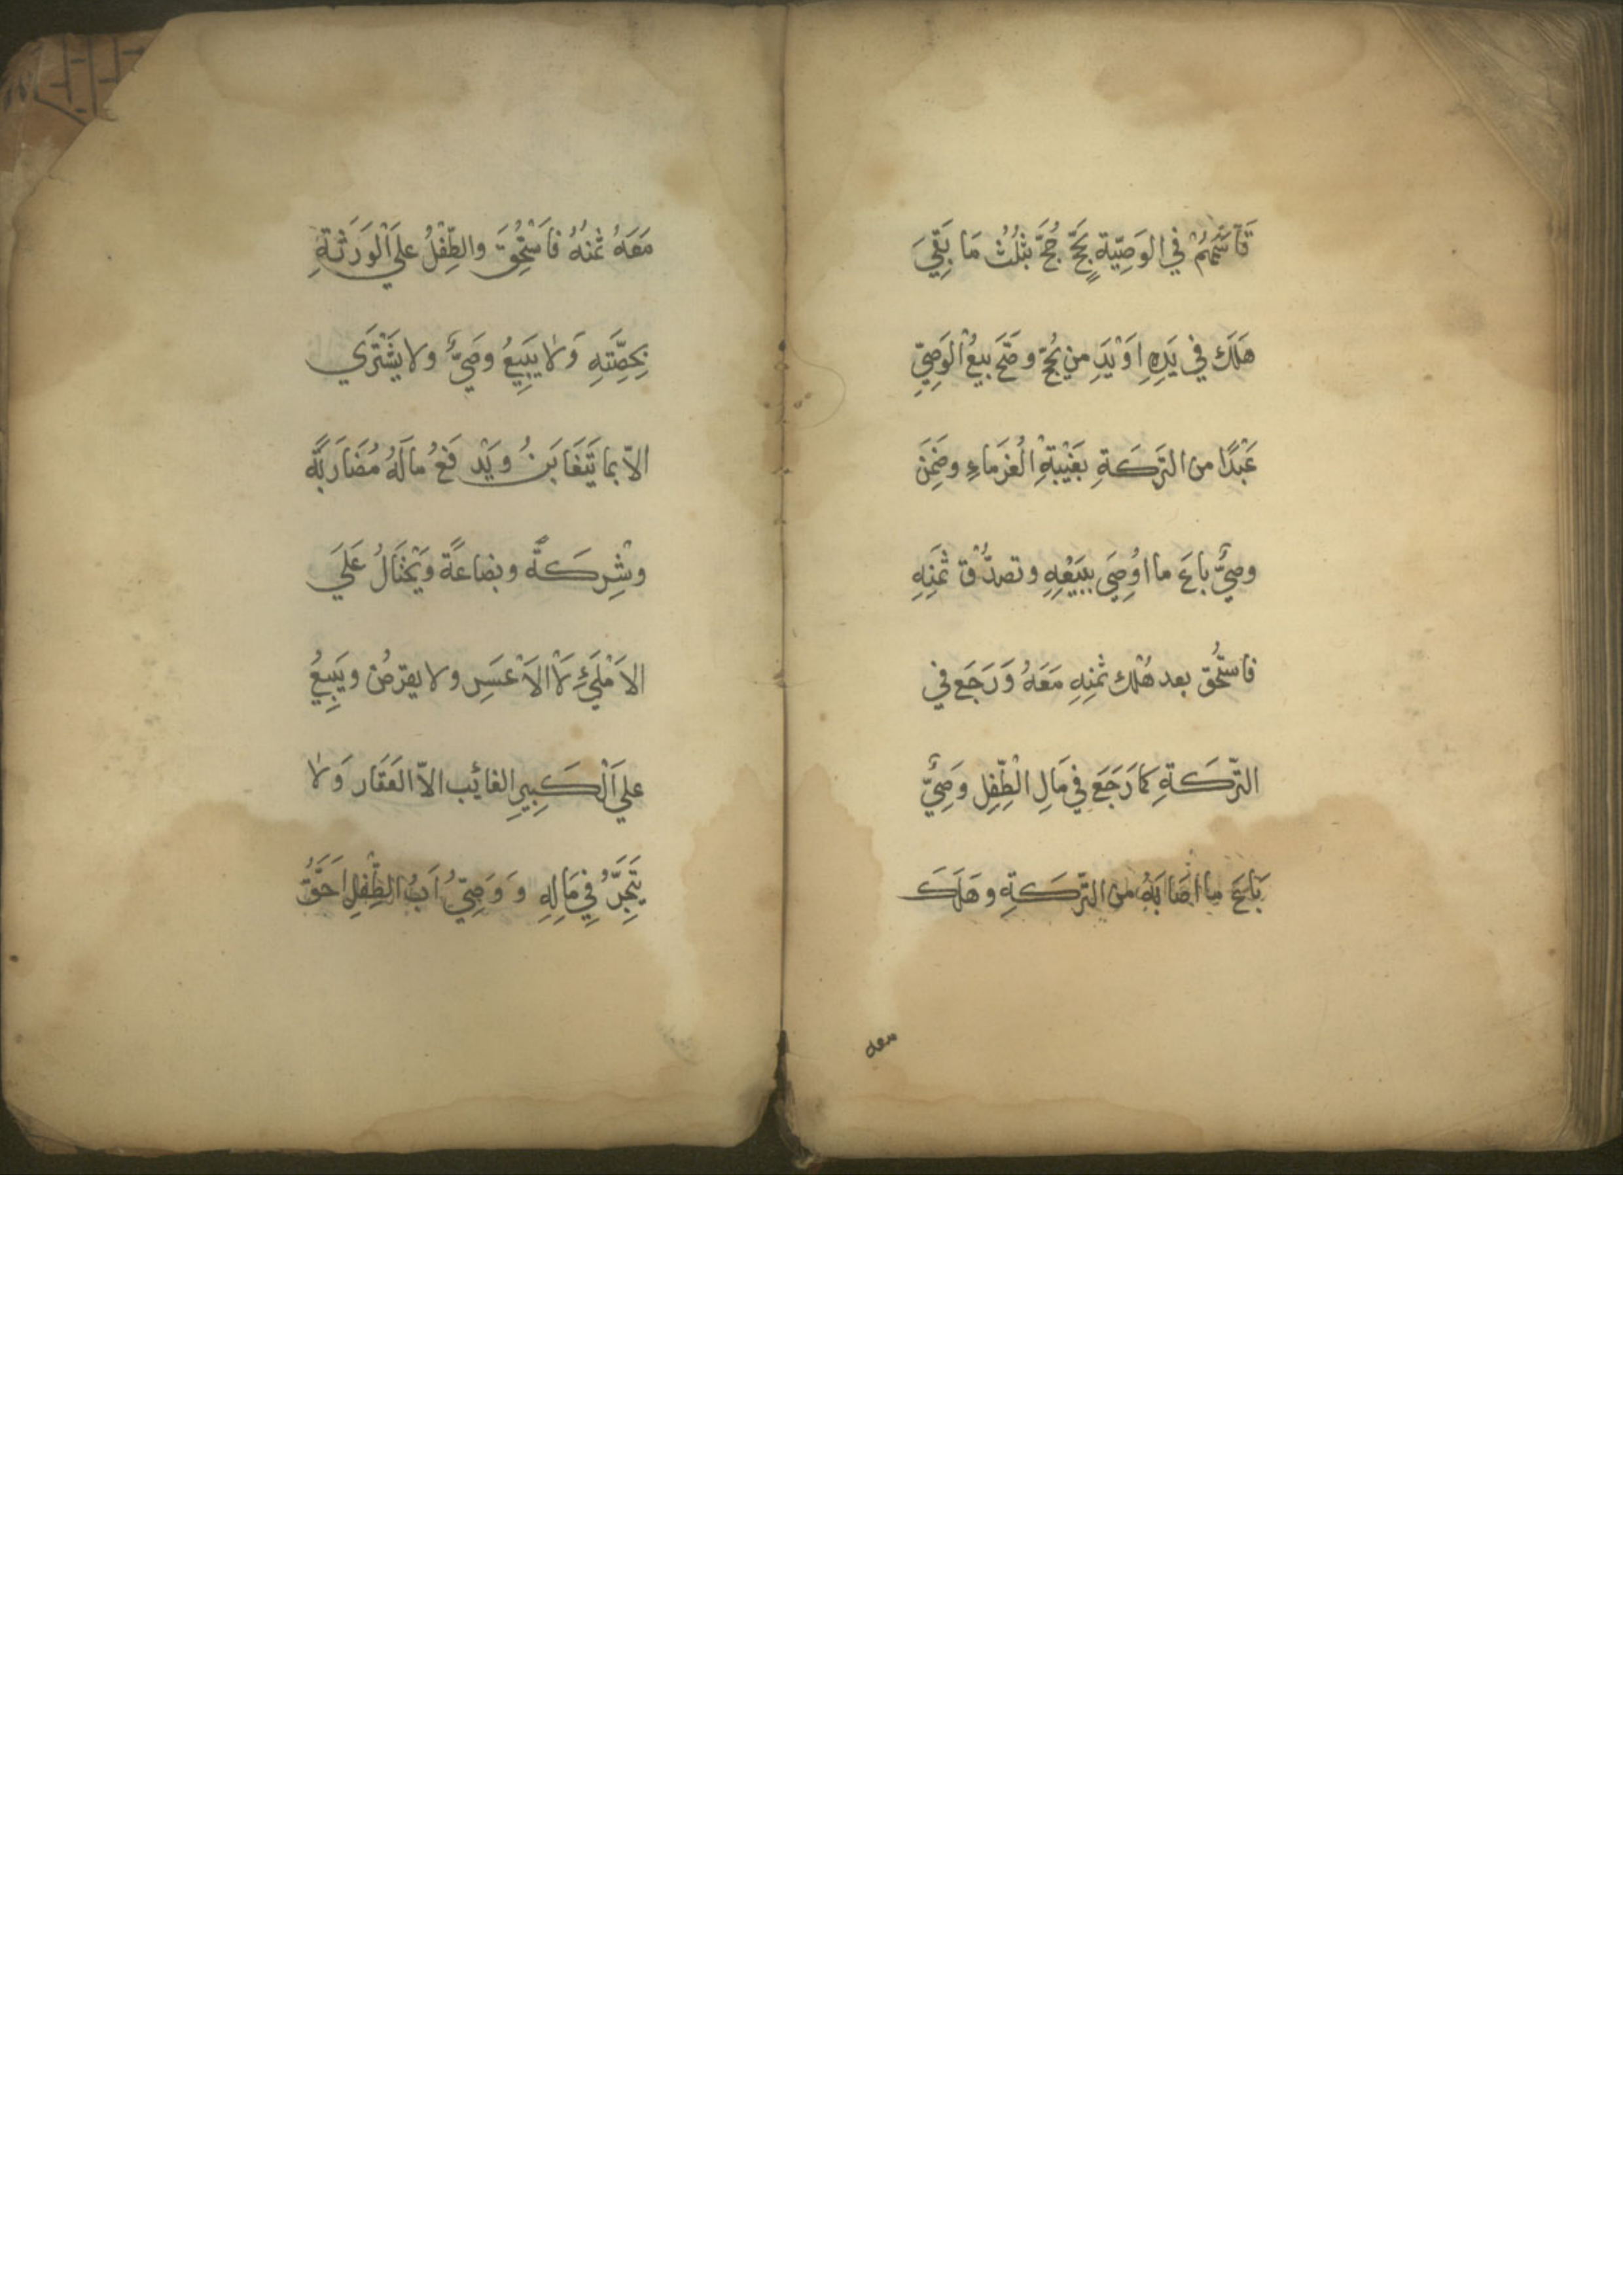 قَاسَمَهُمْ في الوَصِيّة بِحَجّ حُجَّ بثُلُث مَا بَقِيَ
هَلَكَ في يَدِهِ اَوْ يَدِ من يُحَجّ وصَحَّ بيعُ الْوَصِيّ
عَبْدًا من التَرَكَةِ بغَيْبَةِ الْغُرَماءِ وضَمِنَ
وصيٌّ باعَ ما اُوْصِيَ ببَيْعِهِ وتصدُّق ثمَنِهِ
فاستُحق بعد هُلْك ثمَنِهِ مَعَهُ وَرَجَع في
التّركَةِ كمَا رَجَعَ في مَالِ الْطِّفِل وَصِيٌّ
بَاعَ ما اَصَابَهُ من التّركَةِ وهَلَكَ
معه
مَعَهُ ثمنُهُ فاَسْتُحِقَ والطِّفْلُ علي اَلْوَرَثَةِ
بِحِصَّتِهِ وَلا يَبِيعُ وصَيٌّ ولا يَشْتَرَي
الاّ بما يَتَغَابَنُ ويَدْفَعُ مالَهُ مُضَارَبَةً
وشِركَةً وبضاعَةً وَيَحْتَالُ عَلَي
الاَمْلَيءِ لاَ الاَعْسَرِ ولا يقرضُ ويَبِيعُ
علي اَلْكَبِيرِ الغائب الاّ العَقَار وَلا
يَتَّجِرُ فِي مَالِهِ وَ وَصِيُّ اَبُ الطِّفْلِ اَحَقُّ